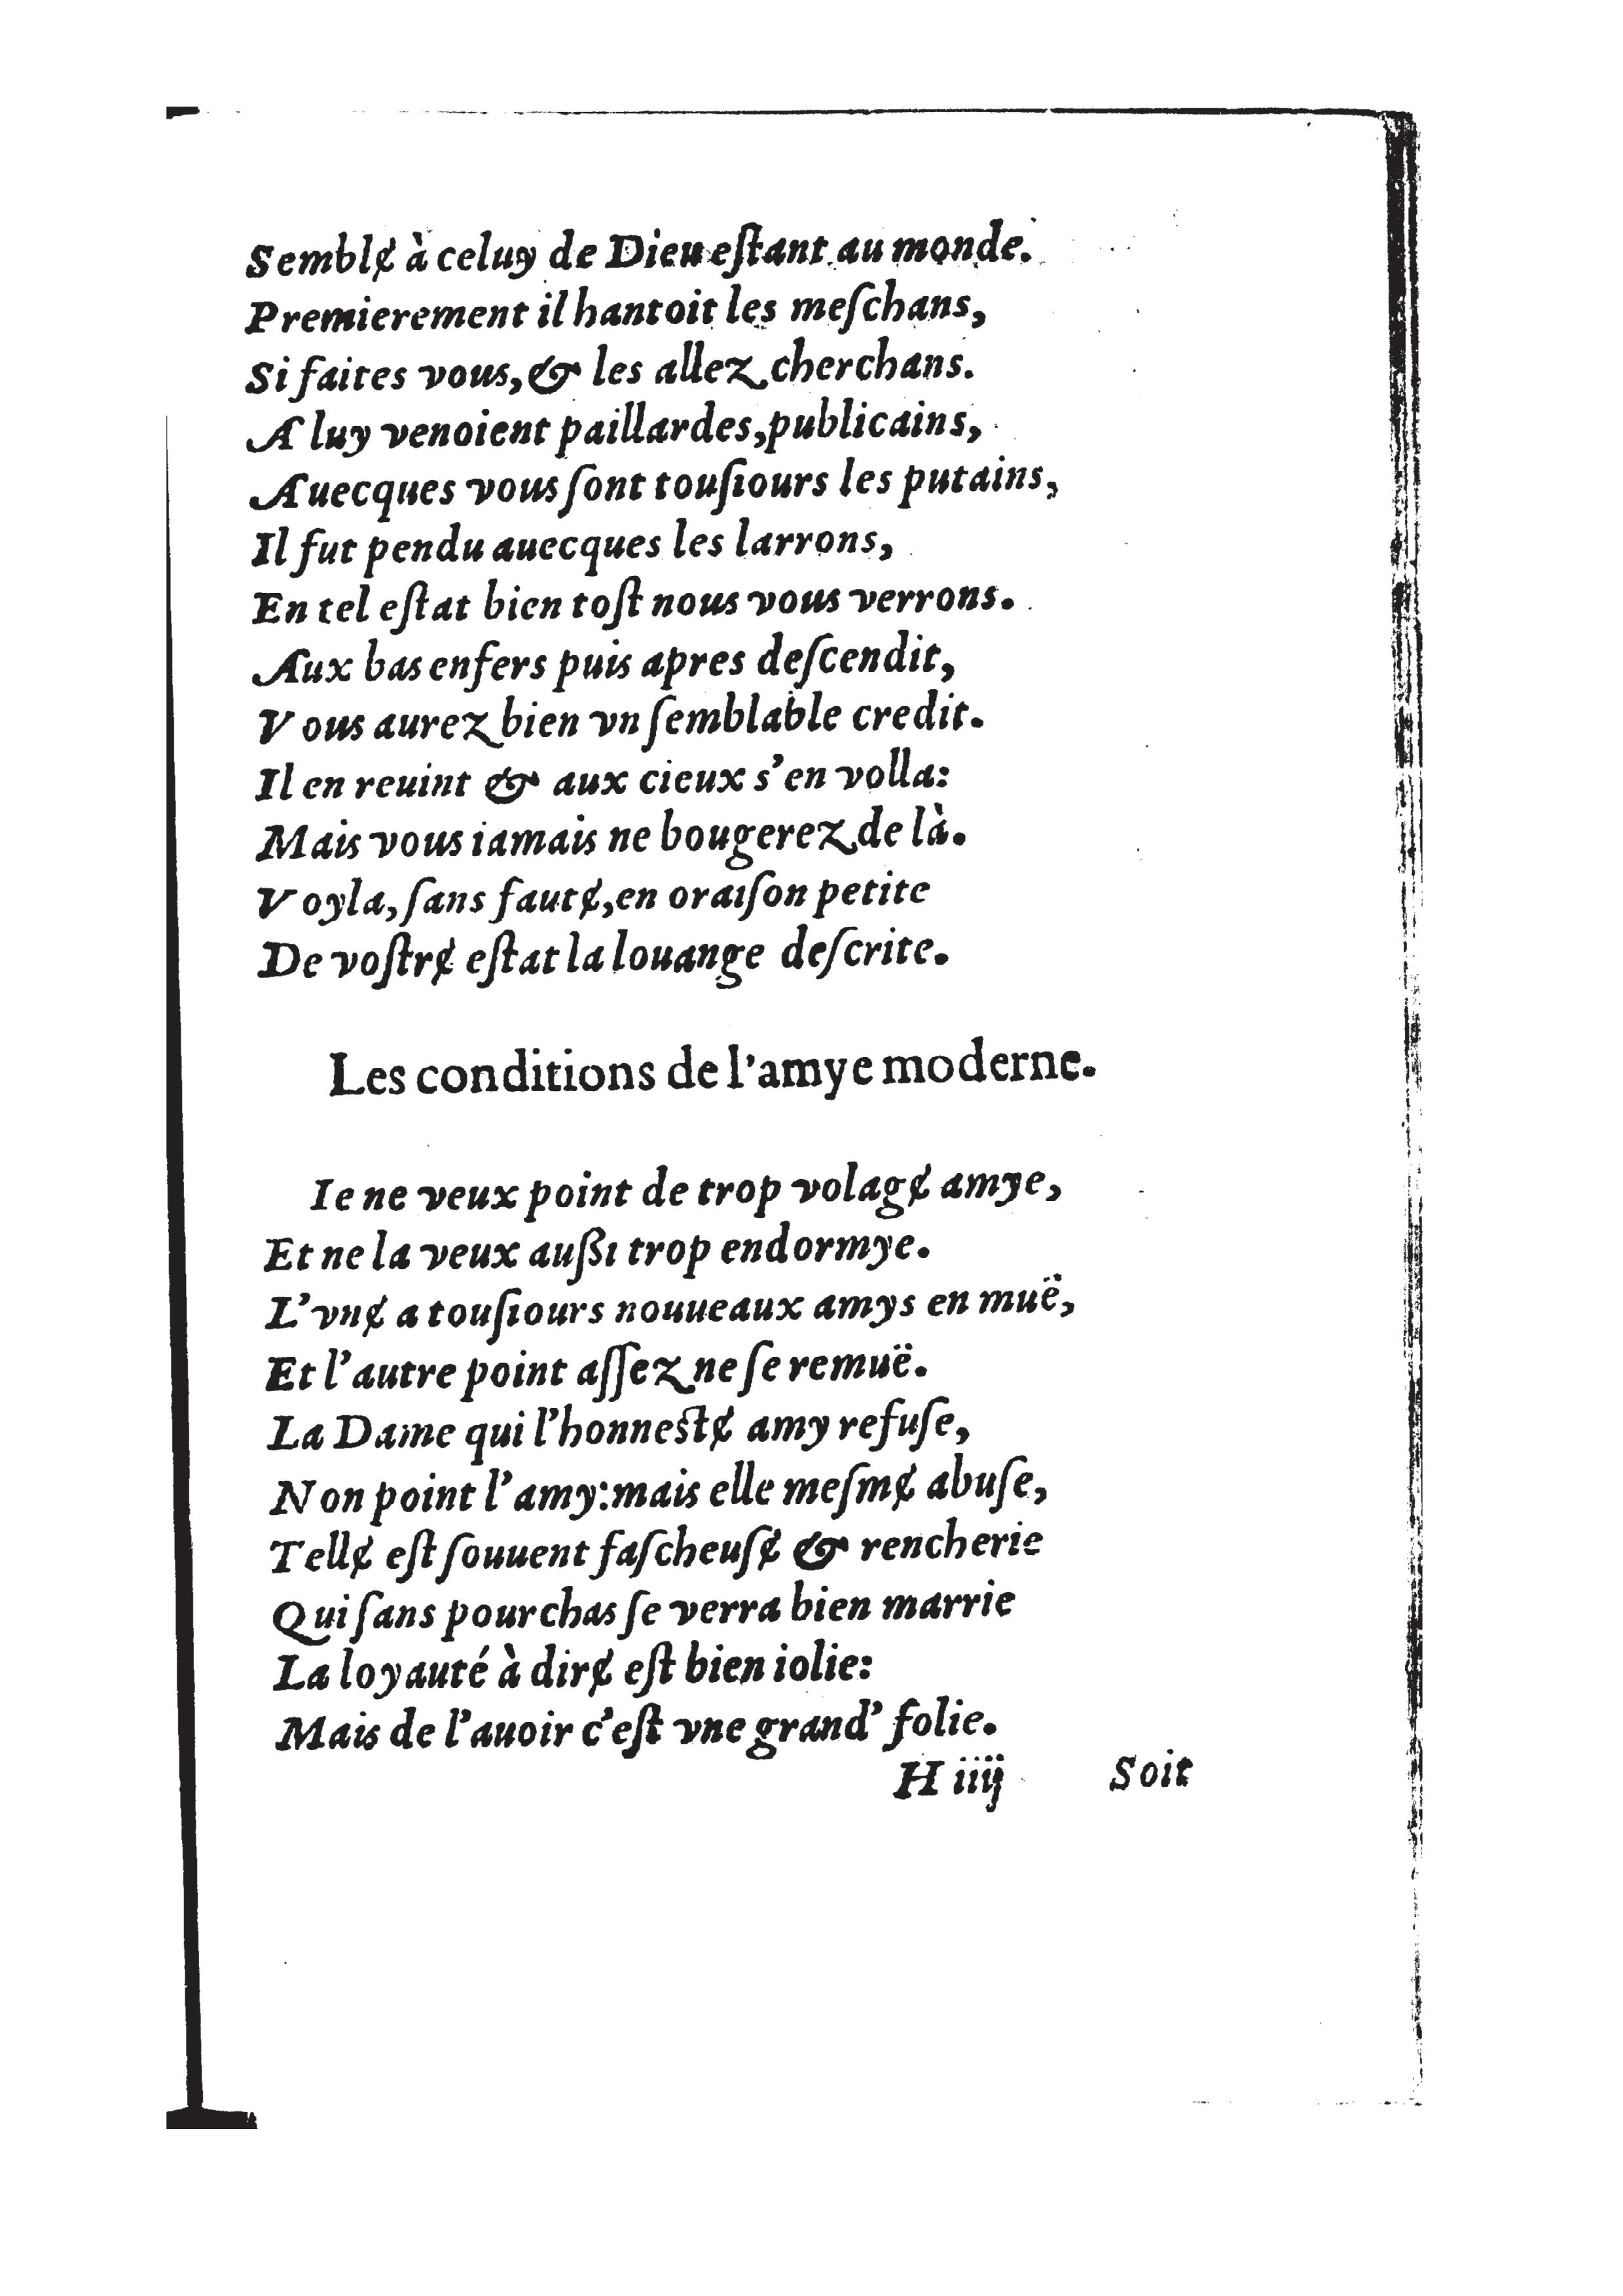 Semblɇ à celuy de Dieu eſtant au monde.
Premierement il hantoit les meſchans,
Si faites vous, & les allez cherchans.
A luy venoient paillardes, publicains,
Auecques vous ſont touſiours les putains,
Il fut pendu auecques les larrons,
En tel eſtat bien toſt nous vous verrons.
Aux bas enfers puis apres deſcendit,
Vous aurez bien vn ſemblable credit.
Il en reuint & aux cieux s'en volla:
Mais vous iamais ne bougerez de là.
Voyla, ſans fautɇ, en oraiſon petite
De voſtrɇ eſtat la louange deſcrite.
Les conditions de l'amye moderne.
Ie ne veux point de trop volagɇ amye,
Et ne la veux außi trop endormye.
L'vnɇ a touſiours nouueaux amys en muë,
Et l'autre point aſſez ne ſe remuë.
La Dame qui l'honneſtɇ amy refuſe,
Non point l'amy: mais elle meſmɇ abuſe,
Tellɇ eſt ſouuent faſcheuſɇ & rencherie
Qui ſans pourchas ſe verra bien marrie
La loyauté à dirɇ eſt bien iolie:
Mais de l'auoir c'eſt vne grand' folie.
H iiij Soit